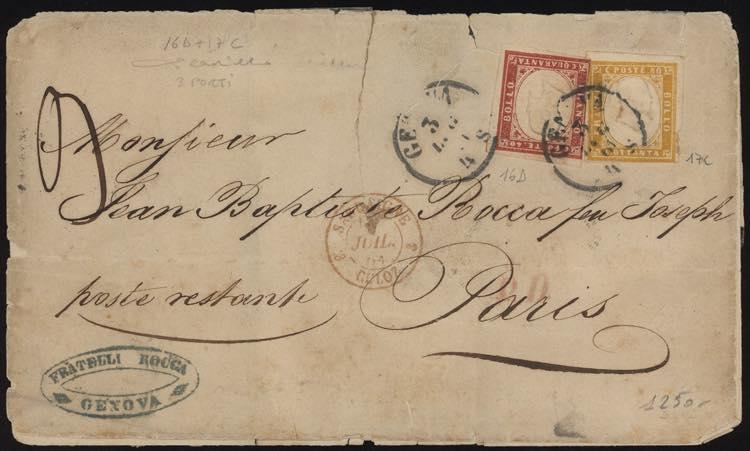 16D+17C
3 PORTI
C. QUARANTA
BOLLO
C. POSTE 80
BOLLO
GENOVA
3
16D
17C
Monsieur
Jean Baptiste Rocca feu Joseph
SARDAIGNE
JUIL.
61
CULOZ
P.D.
poste restante Paris
FRATELLI ROCCA
GENOVA
1250-